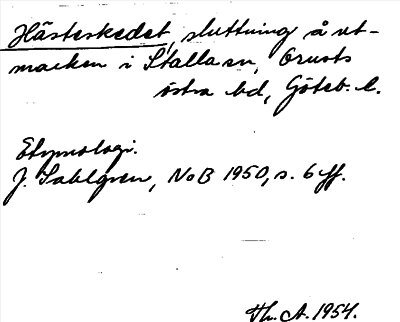 Hästeskedet, sluttning å ut-
marken i Stalla sn, Orusts
östra hd, Göteb. l.
Etymologi.
J. Sahlgren, NoB 1950, s. 6 ff.
Th. A. 1954.